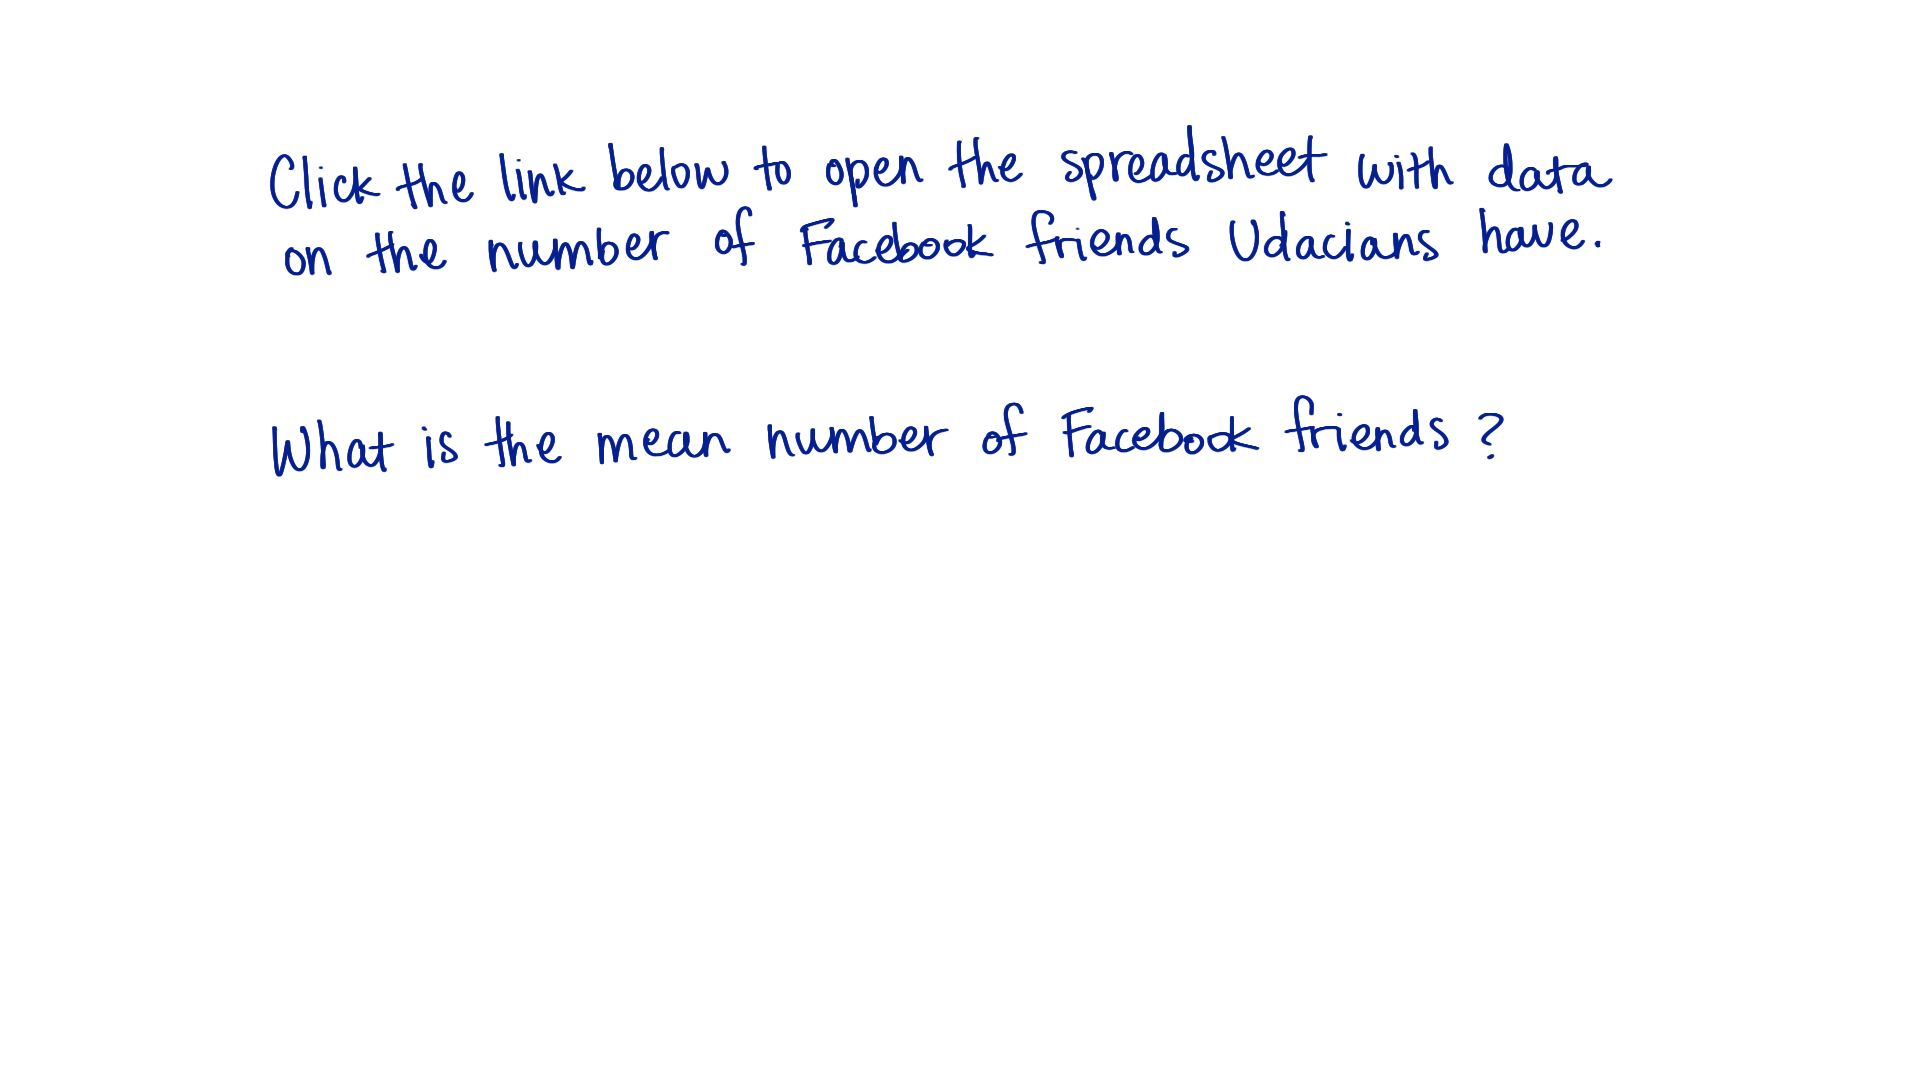 Click the link below to open the spreadsheet with data
on the number of Facebook friends Udacians have.
What is the mean number of Facebook friends?